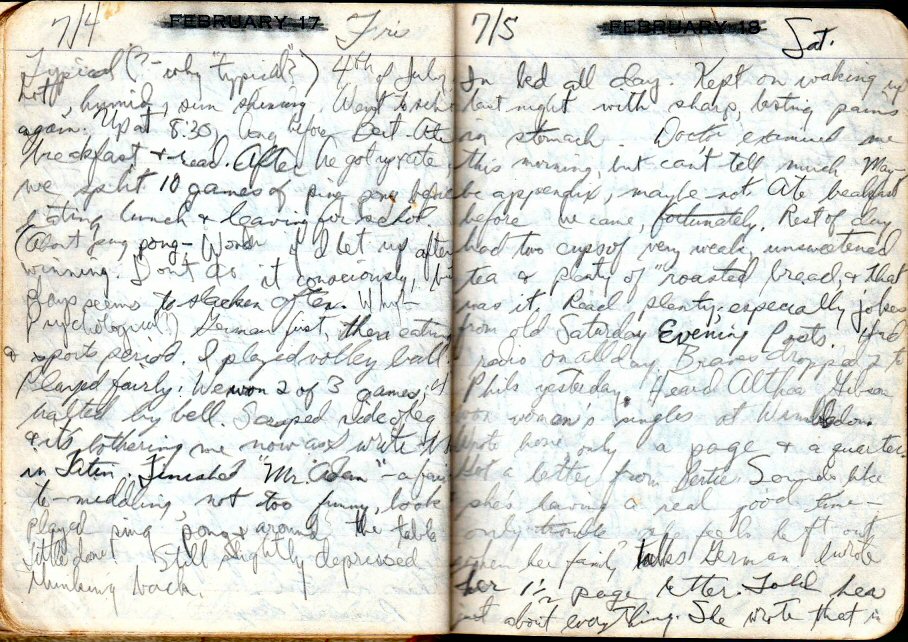 7/4 FEBRUARY 17 Fris
Typical (?- why "typical"?) 4th of July
hot, humid, sun shining. Went to
again. Up at 8:30, long before Ate
breakfast & read. After he got up & ate
we split 10 games of ping pong before
eating lunch & leaving for
(About ping pong- Wonder if I let up after
winning. Don't do it consciously, but
play seems to slacken often. Why?-
Psychological?) German first, then eating
& sports period. I played volley ball.
Played fairly. We won 2 of 3 games,
halted by bell. Scraped side of leg
& it's bothering me now as I write this
in "Mr. Adam" - a fair-
to-middling, not too funny, book
played ping pong & around the table
Little done! Still slightly depressed
thinking back.
7/5 FEBRUARY 18 Sat.
In bed all day. Kept on waking up
last night with sharp, lasting pains
in stomach. Doctor examined me
this morning, but can't tell much. May-
be appendix, maybe not. Ate breakfast
before he came, fortunately. Rest of day
had two cups of very weak, unsweetened
tea & plenty of "roasted bread, & that
was it. Read plenty, especially jokes
from old Saturday Evening Posts. Had
radio on all day. Braves dropped 2 to
Phils yesterday. Heard Althea Gibson
won women's singles at Wimbledon.
Wrote home, only a page & a quarter.
Got a letter from Bertie. Sounds like
she's having a real good time-
only trouble she feels left out
when her family talks German. I wrote
her 1½ page letter. Told her
about everything. She wrote that in